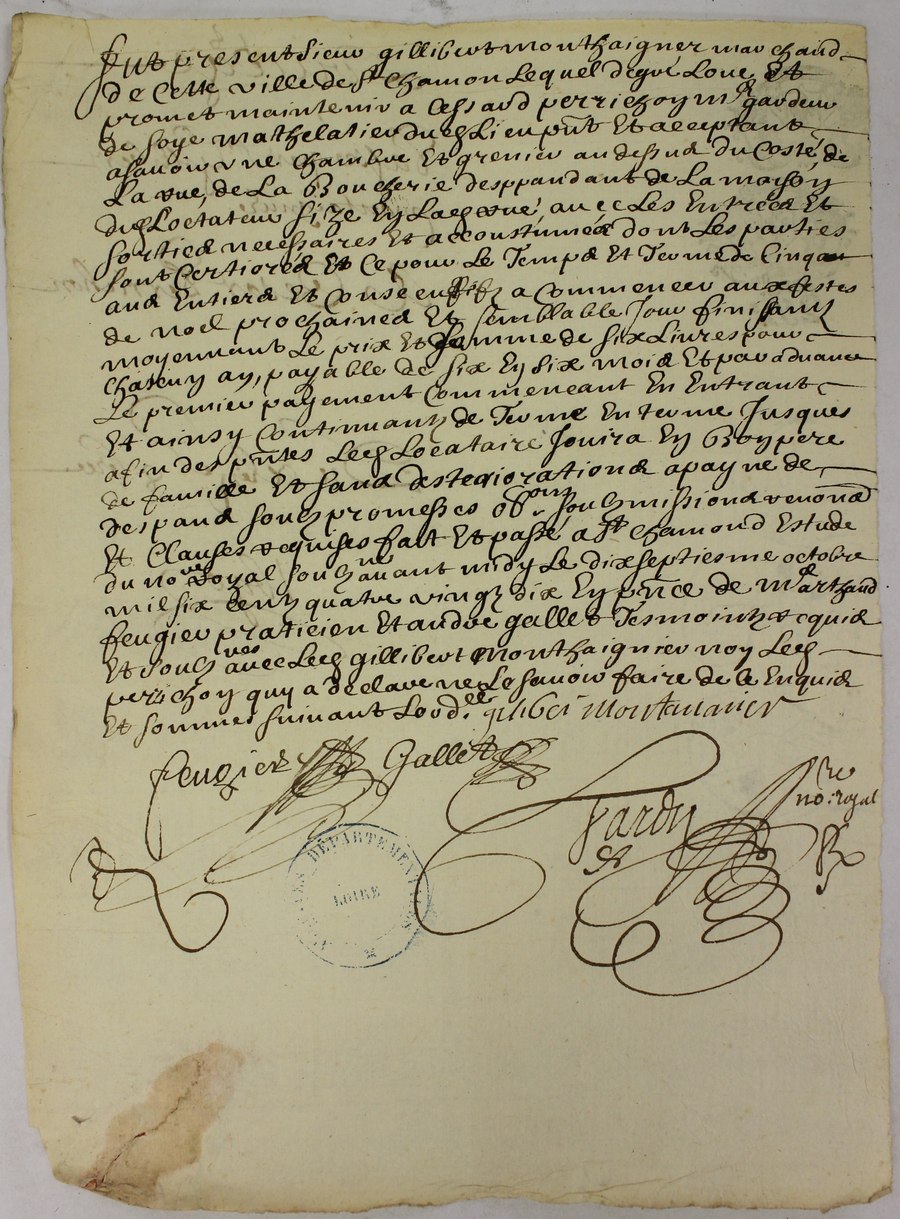 fut present sieur gillibert monthaigner marchand
de Cette ville de st Chamon Lequel degré Loue et
promet maintenir a Cessard perrichoy mr gardeur
de soye mathelatier dud Lieu pnt Et acceptant
asauoir vne Chambre Et grenier au dessus du Costé de
La rue, de La Boucherie desppandant de La maison
dud Loctateur size En Lad rue, auec Les Entrees Et
sorties necessaires Et accoustumées dont Les parties
sont Certiores Et Ce pour Le Temps Et Terme de Cinq
ans Entiers Et a Commencer aux festes
de noel prochaines Et semblable Jour finissant
moyennant Le prix Et somme de six Liures pour
Chacun an, payable de six En six mois Et par aduance
Le premier payement Commencant En Entrant
Et ainsy Continuant de Terme En terme Jusques
afin des pntes Led Locataire Jouira En Bon pere
de famille Et sans desteriorations a payne de
despans soubz promesses obons soubzmissions renons
Et Clauses requises fait Et passé a st Chamond Estude
du nore Royal soubzne auant midy Le dixseptiesme octobre
mil six Centz quatre vingtz dix En pnce de me arthaud
feugier praticien Et andre gallet Tesmointz requis
Et soubznes auec Led gillibert monthaignier non Led
perrichoy quy a declare ne Le sauoir faire de ce Enquis
Et sommes suiuant Lordce gilibert montanier
feugier Gallet
Tardy
nore: royal
ARCHIVES DÉPARTEMENTALES
LOIRE